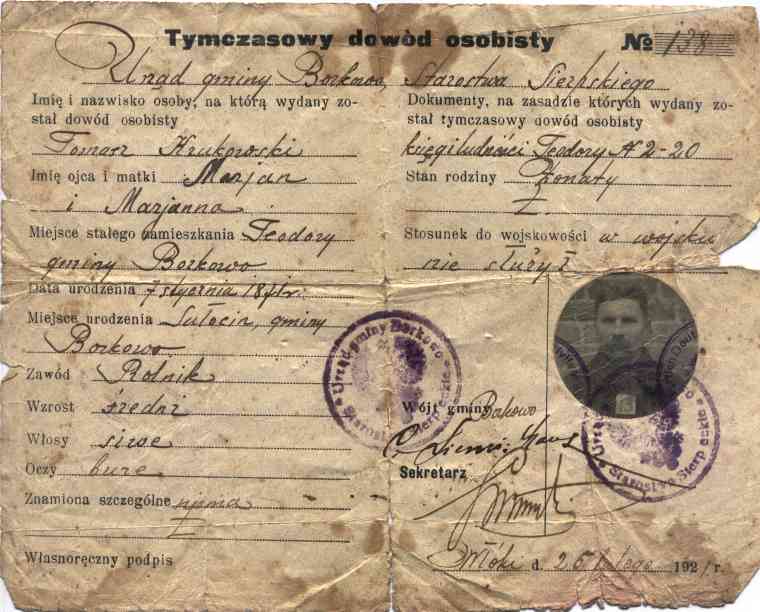 Tymczasowy dowód osobisty № 138
Urząd gminy Borkowo, Starostwa Sierpskiego
Imię i nazwisko osoby, na którą wydany zo-
stał dowód osobisty
Tomasz Krukowski
Imię ojca i matki Marjan
i Marjanna
Miejsce stałego zamieszkania Teodory
gminy Borkowo
Data urodzenia 7 stycznia
Miejsce urodzenia Sułocin, gminy
Borkowo
Zawód Rolnik
Wzrost średni
Włosy siwe
Oczy bure
Znamiona szczególne niema
Własnoręczny podpis
Dokumenty, na zasadzie których wydany zo-
stał tymczasowy dowód osobisty
księgi ludności Teodory N 2-20
Stan rodziny Żonaty
Stosunek do wojskowości w wojsku
nie służył
Urząd gminy Borkowo
Starostwo Sierpeckie
Wójt gminy Borkowo
Sekretarz
Starostwo Sierpeckie
d. 25 lutego 1921 r.